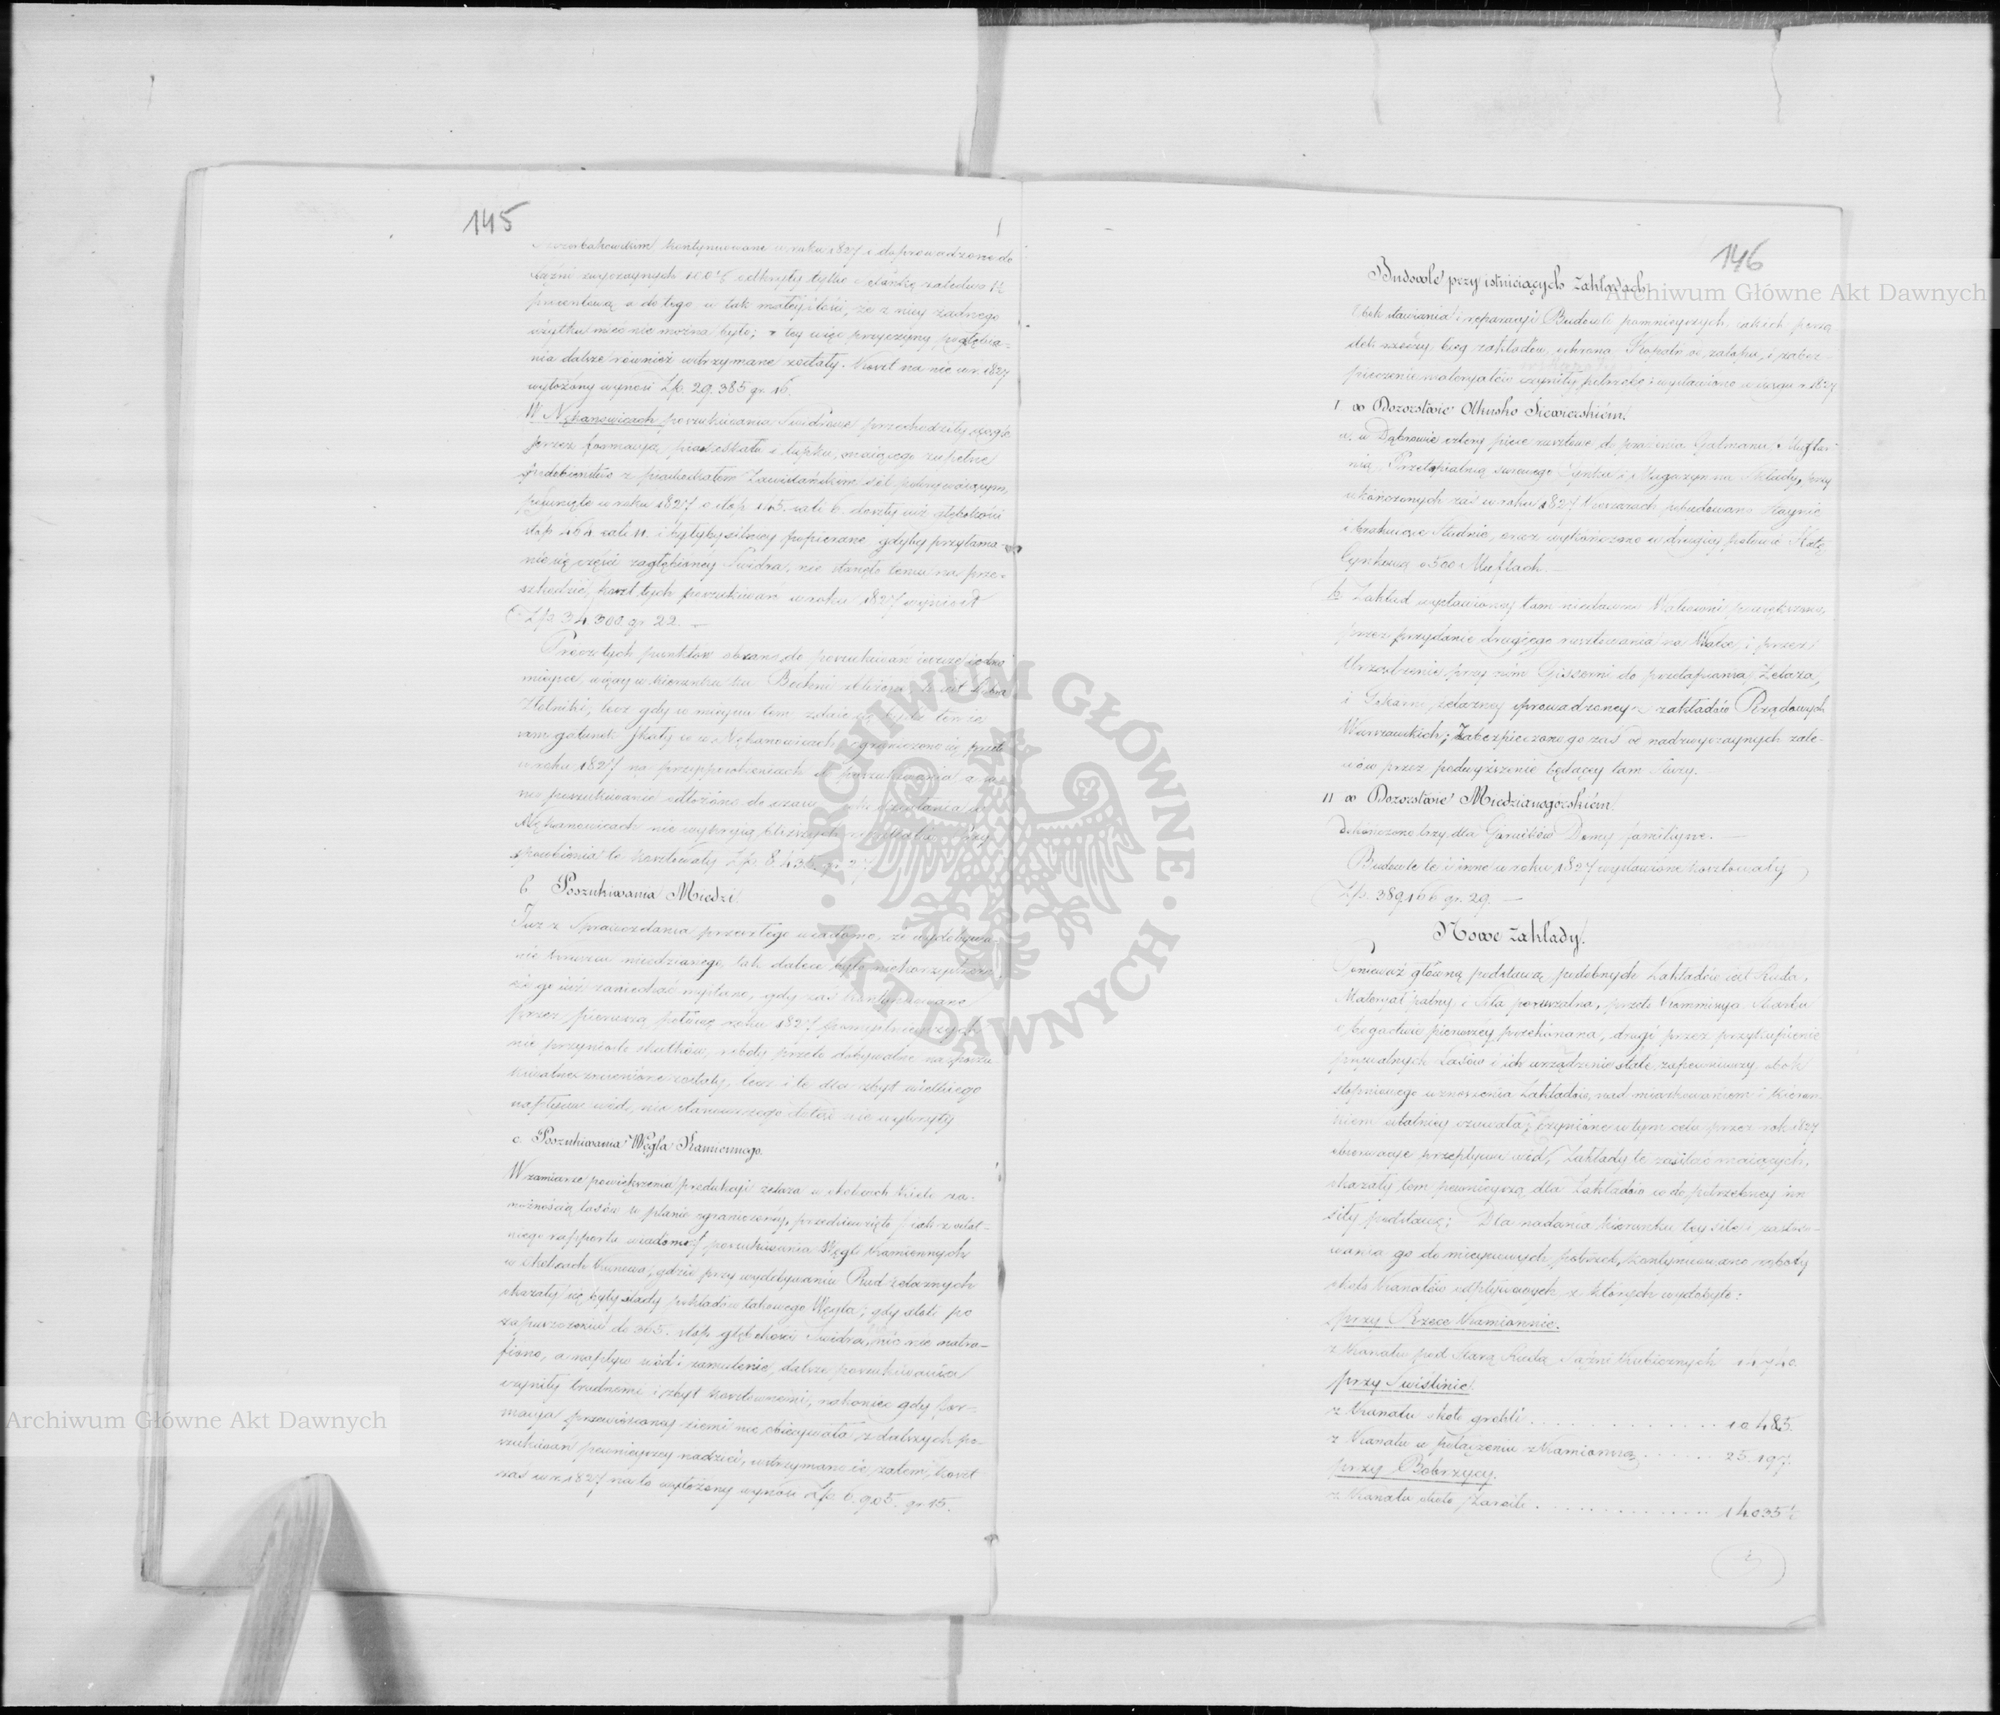 145
kontynuowane w roku 1827 i doprowadzone do
Łaźni zwyczaynych odkryły tylko solankę zaledwo
procentową a do tego w tak małéy ilości, że z niey żadnego
użytku mieć nie można było; z tey więc przyczyny pogłębia-
nia dalsze również wstrzymane zostały. Koszt na nie w r. 1827
wyłożony wynosi Złp. 29,385 gr. 16.
W Nękanowicach poszukiwania Świdrowe przechodziły ciągle
przez formacyą piaskokału i łupku, maiącego zupełne
podobieństwo z
posunięte w roku 1827 o stóp 145. cali 6. doszły już głębokości
stóp 464 cali 11. i byłyby silniey popierane, gdyby przyłama-
nie się części zagłębioney Świdra, nie stanęło temu na prze-
szkodzie, koszt tych poszukiwań w roku 1827 wyniósł
Złp. 34,300 gr 22. —
Prócz tych punktów obrane do poszukiwań ieszcze iedno
mieysce, więcey w kierunku ku Bochni zbliżone, to iest
lecz gdy w mieyscu tem zdaie się bydź ten że
sam gatunek Skały co w Nękanowicach, ograniczono się przeto
w roku 1827 na przyspobieniach do poszukiwania a
poszukiwanie odłożono do czasu
Nękanowicach nie wykryią bliższych
sposobienia te kosztowały Złp. 8436 gr. 27
b. Poszukiwania Miedzi.
Już z Sprawozdania przeszłego wiadomo, że wydobywa-
nie kruszcu miedzianego, tak dalece było niekorzystnem
że go już zaniechać myślano, gdy zaś kontynuowane
przez pierwszą połowę roku 1827 pomyślnieyszych
nie przyniosło skutków, roboty przeto dobywalne na poszu-
kiwalne zmienione zostały, lecz i te dla zbyt wielkiego
napływu wód, nic stanowczego dotąd nie wykryły
c. Poszukiwania Węgla Kamiennego.
W zamiarze powiększenia produkcyi żelaza w okolicach Kielc za-
możnością lasów w planie ograniczoney, przedsięwzięto jak z ostat-
niego rapportu wiadomo poszukiwania Węgli kamiennych
w Okolicach Kunowa, gdzie przy wydobywaniu Rud żelaznych
okazały się były ślady pokładów takowego Węgla; gdy atoli po
zapuszczeniu do 365. stóp głębokości Świdra, nic nie natra-
fiono, a napływ wód i zamulenie, dalsze poszukiwania
czyniły trudnemi i zbyt kosztownemi, nakoniec gdy for-
macya przewierconey ziemi nie obiecywała z dalszych po-
szukiwań pewnieyszey nadziei, wstrzymano ie zatem, koszt
zaś w r. 1827 na to wyłożony wynosi Złp. 6,905. gr. 15.
146
Budowle przy istnieiących Zakładach.
Obok stawiania i reparacyi Budowli pomnieyszych, iakich porzą-
dek rzeczy, bieg zakładów, ochrona Kopalń od zatopu, i zabez-
pieczenie materyałów czyniły potrzebę: wystawiono w ciągu r. 1827
I w Dozorstwie Olkusko Siewierskiém.
a. w Dąbrowie cztery piece rusztowe do prażenia Galmanu, Muflar-
nią, Przetapialnią surowego Cynku i Magazyn na Składy, przy
ukończonych zaś w roku 1827 Koszarach pobudowano Staynie
i brakuiące Studnie, oraz wykończono w drugiey połowie Hutę
Cynkową o 500 Muflach. —
b. Zakład wystawioney tam niedawno Walcowni powiększono,
przez przydanie drugiego rusztowania na Walce, i przez
Urządzenie przy nim Gisserni do przetapiania Żelaza,
i Tokarni żelazney sprowadzoney z zakładów Rządowych
Warszawskich; Zabezpieczono go zaś od nadzwyczaynych zale-
wów przez podwyższenie będącey tam Śluzy. —
II w Dozorstwie Miedzianogórskiém.
Dokończono trzy dla Górników Domy familiyne. —
Budowle te i inne w roku 1827 wystawione kosztowały
Złp. 389,166 gr. 29. —
Nowe Zakłady.
Ponieważ główną podstawą podobnych Zakładów iest Ruda,
Materyał palny i Siła poruszalna, przeto Kommissya Skarbu
o bogactwie pierwszey przekonana, drugi przez przykupienie
prywatnych Lasów i ich urządzenie stałe zapewniwszy obok
stopniowego wznoszenia Zakładów, nad miarkowaniem i kierun-
kiem ostatniey czuwała; Czynione w tym celu przez rok 1827
obserwacye przepływu wód, Zakłady te zasilać maiących,
okazały tem pewnieyszą dla Zakładów co do potrzebney im
siły podstawę; Dla nadania kierunku tey sile i zastoso-
wania go do mieyscowych potrzeb, kontynuowano roboty
około Kanałów odpływowych z których wydobyto:
przy Rzece Kamionnie.
z Kanału pod Starą Rudą, Sążni Kubicznych 14740
przy Świślinie.
z Kanału około grobli . . . . . . . . . . . . . . 10485.
z Kanału w połączeniu z Kamionną . . . . . 25,197.
przy Bobrzycy.
z Kanału około . . . . . . . . . . . . . . 14035½
Archiwum Główne Akt Dawnych
Archiwum Główne Akt Dawnych
ARCHIWUM GŁÓWNE AKT DAWNYCH